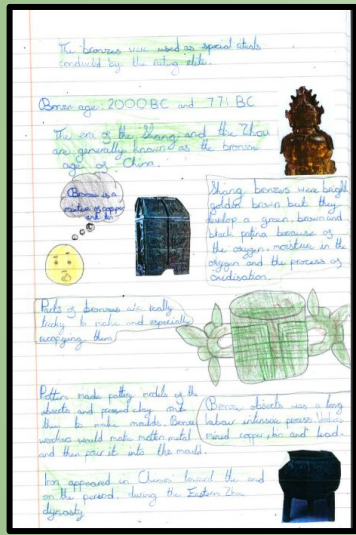 The bronzes were used as special rituals
conducted by the ruling elite.
Bronze age: 2000 BC and 771 BC
The era of the Shang and the Zhou
are generally known as the bronze
age of China.
Bronze is a
mixture of copper
and tin
Shang bronzes were bright
golden brown but they
develop a green, brown and
black patina because of
the oxygen, moisture in the
oxygen and the process of
oxidisation.
Parts of bronzes are really
tricky to make and especially
recopying them
Potters made pottery models of the
objects and pressed clay onto
them to make moulds. Bronze
workers would make molten metal
and then pour it into the mould.
Bronze objects was a long
labour intensive process.
mined copper, tin and lead.
Iron appeared in China toward the end
on the period, during the Eastern Zhou
dynasty